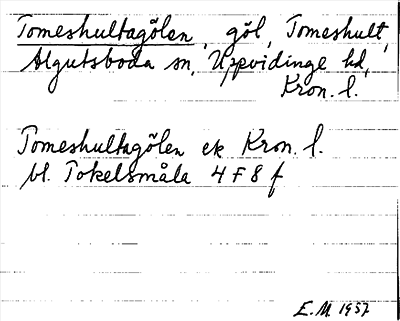 Tomeshultagölen, göl, Tomeshult,
Algutsboda sn, Uppvidinge hd,
Kron. l.
Tomeshultagölen ek Kron. l.
bl. Tokelsmåla 4 F 8 f
E.M. 1957